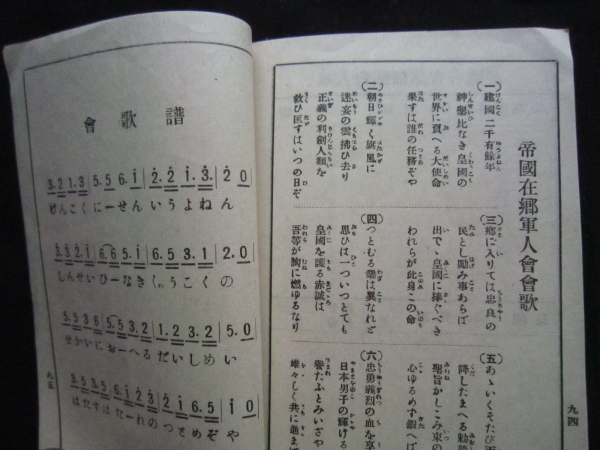 帝國在郷軍人會會歌
(一)建國二千有餘年
神聖比なき皇國の
世界に負へる大使命
果すは誰の任務ぞや
(二)朝日輝く旗風に
迷妄の雲拂ひ去り
正義の利劍人類を
救ひ匡すはいつの日ぞ
(三)郷に入りては忠良の
民とし勵み事あらば
出でゝ皇國に捧ぐべき
われらが此身この命
(四)つとむる業は異なれど
思ひは一ついつとても
皇國を護る赤誠は
吾等が胸に燃ゆるなり
(五)あゝいくそたび
降したまへる勅
聖旨かしこみ束の
心ゆるめず鍛へば
(六)忠勇義烈の血を享
日本男子の輝ける
譽たふとみいざや
雄々しく共に進ま
九四
會歌譜
3.2 1.3 5.5 6.i 2.2 i.3. 2 0
けんこくにーせんいうよねん
しんせいひーなきくわうこくの
5.5 3.6 5.5 3.2 1.2 3.2 5. 0
せかいにおーへるだいしめい
はたすはたーれのつとめぞや
九五